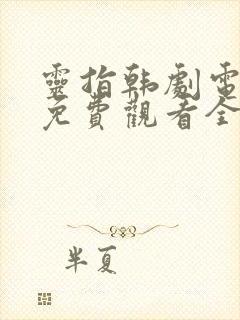 靈指韩劇電
免費觀看全
半夏